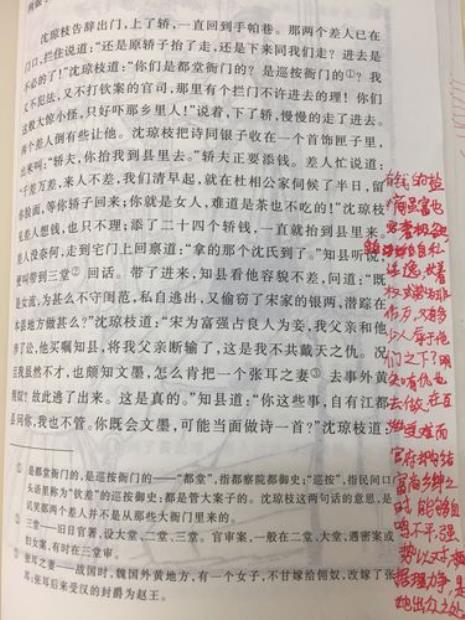 沈琼枝告辞出门，上了轿，一直回到手帕巷。那两个差人已在
门口，拦住说道：“还是原轿子抬了走，还是下来同我们走？进去是
不必的了！”沈琼枝道：“你们是都堂衙门的？是巡按衙门的①？我
又不犯法，又不打钦案的官司，那里有个拦门不许进去的理！你们
这般大惊小怪，只好吓那乡里人！”说着，下了轿，慢慢的走了进去。
两个差人倒有些让他。沈琼枝把诗同银子收在一个首饰匣子里，
出来叫：“轿夫，你抬我到县里去。”轿夫正要添钱。差人忙说道：
“千差万差，来人不差，我们清早起，就在杜相公家伺候了半日，留
你脸面，等你轿子回来；你就是女人，难道是茶也不吃的！”沈琼枝
见差人想钱，也只不理；添了二十四个轿钱，一直就抬到县里来。
差人没奈何，走到宅门上回禀道：“拿的那个沈氏到了。”知县听说，
便叫带到三堂②回话。带了进来，知县看他容貌不差，问道：“既
是女流，为甚么不守闺范，私自逃出，又偷窃了宋家的银两，潜踪在
本县地方做甚么？”沈琼枝道：“宋为富强占良人为妾，我父亲和他
涉了讼，他买嘱知县，将我父亲断输了，这是我不共戴天之仇。况
且我虽然不才，也颇知文墨，怎么肯把一个张耳之妻③去事外黄
佣奴？故此逃了出来。这是真的。”知县道：“你这些事，自有江都
县问你，我也不管。你既会文墨，可能当面做诗一首？”沈琼枝道：
① 是都堂衙门的，是巡按衙门的——“都堂”，指都察院都御史；“巡按”，指民间口
头语里称为“钦差”的巡按御史：都是管大案子的。沈琼枝这两句话的意思，是
讥笑那两个差人并不是从那些大衙门里来的。
② 三堂——旧日官署，设大堂、二堂、三堂。官审案，一般在二堂、大堂，遇密案或
妇女案，有时在三堂审。
③ 张耳之妻——战国时，魏国外黄地方，有一个女子，不甘嫁给佣奴，改嫁了张
耳；张耳后来受汉的封爵为赵王。
有钱的盐
商虽富也
作歹，只有多
少人辱于他
们之下？明
知有仇也
去做，在百
受难而
官府却勾结
富商乡绅之
时，能够自
鸣不平，强
势以对，
据理力争，是
她出众之处